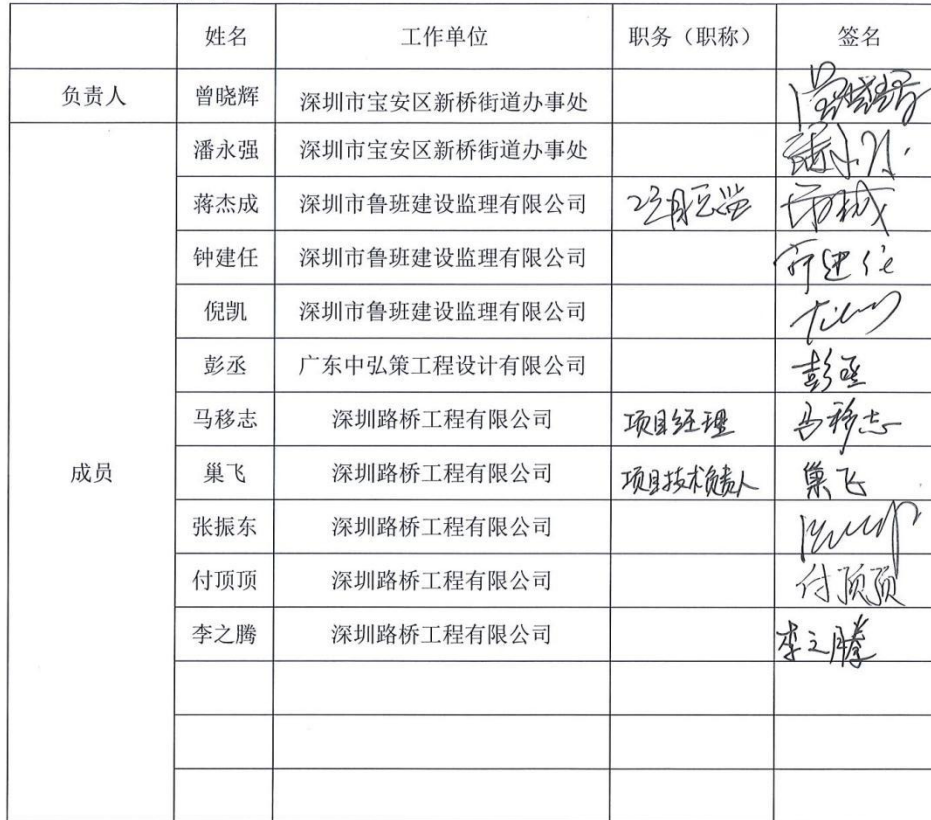 姓名 工作单位 职务（职称） 签名
负责人 曾晓辉 深圳市宝安区新桥街道办事处
潘永强 深圳市宝安区新桥街道办事处
蒋杰成 深圳市鲁班建设监理有限公司
钟建任 深圳市鲁班建设监理有限公司
倪凯 深圳市鲁班建设监理有限公司
彭丞 广东中弘策工程设计有限公司 彭丞
马移志 深圳路桥工程有限公司 项目经理 马移志
成员 巢飞 深圳路桥工程有限公司 项目技术负责人 巢飞
张振东 深圳路桥工程有限公司
付顶顶 深圳路桥工程有限公司 付顶顶
李之腾 深圳路桥工程有限公司 李之腾